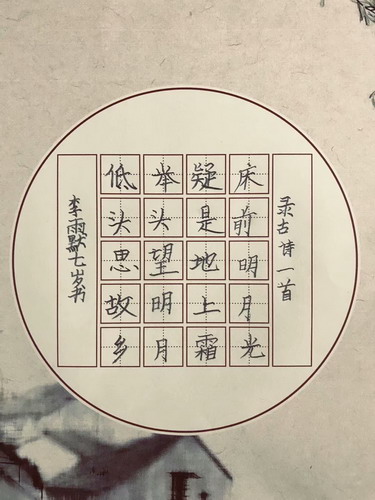 录古诗一首
床前明月光
疑是地上霜
举头望明月
低头思故乡
李雨默七岁书